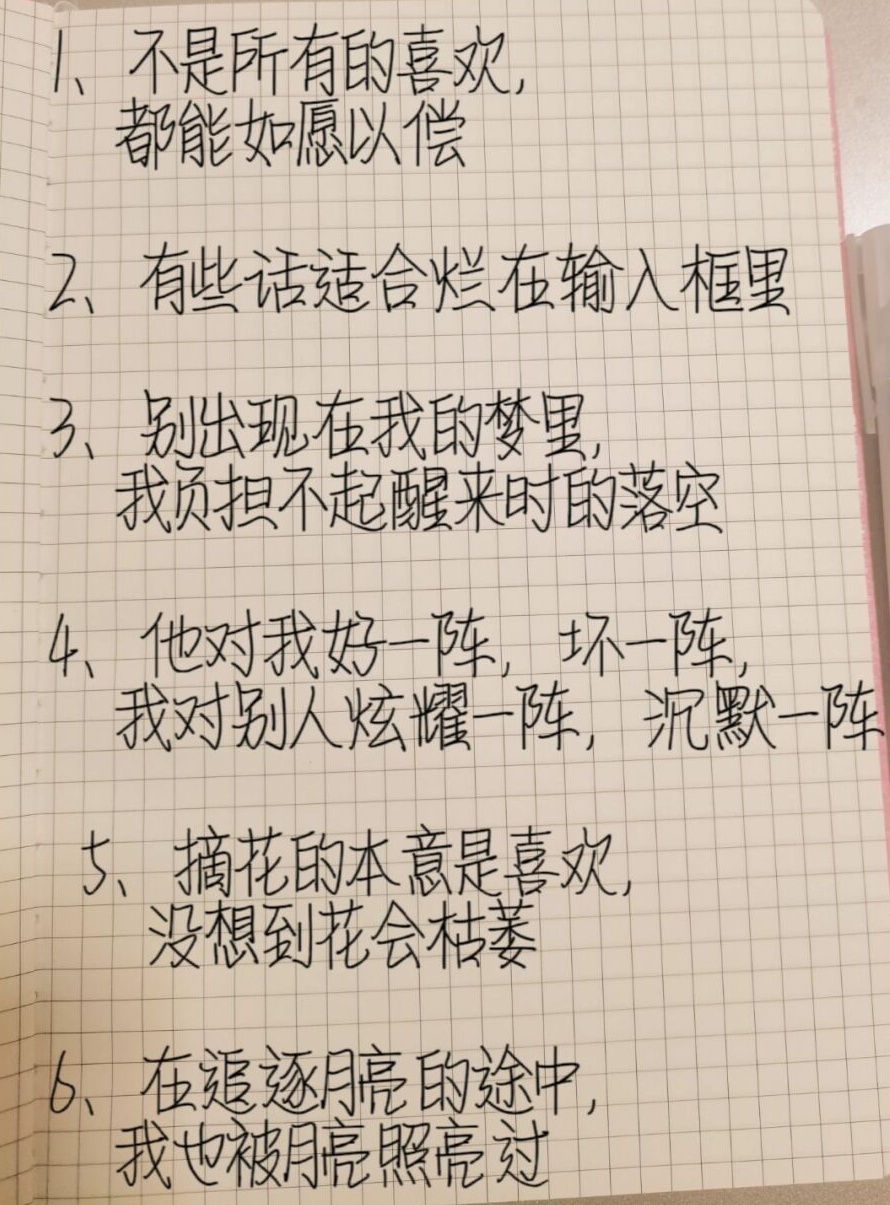 1、不是所有的喜欢,
都能如愿以偿
2、有些话适合烂在输入框里
3、别出现在我的梦里,
我负担不起醒来时的落空
4、他对我好一阵,坏一阵,
我对别人炫耀一阵,沉默一阵
5、摘花的本意是喜欢,
没想到花会枯萎
6、在追逐月亮的途中,
我也被月亮照亮过